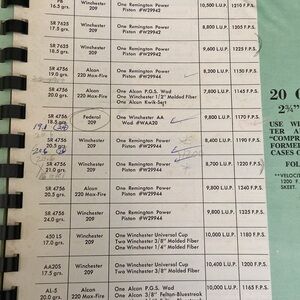 PB Winchester One Remington Power 10,500 L.U.P. 1210 F.P.S.
16.5 grs. 209 Piston #W29942
SR 7625 Winchester One Remington Power 8,800 L.U.P. 1205 F.P.S.
17.5 grs. 209 Piston #W29942
SR 7625 Winchester One Remington Power 9,600 L.U.P. 1225 F.P.S.
18.5 grs. 209 Piston #W29942
SR 4756 Alcan One Remington Power 8,200 L.U.P. 1150 F.P.S.
19.5 grs. 220 Max-Fire Piston #W29944
SR 4756 Alcan One Alcan P.G.S. Wad 7,800 L.U.P. 1145 F.P.S.
20.0 grs. 220 Max-Fire One Winchester 1/2" Molded Fiber
One Alcan Kwik-Sert
SR 4756 Federal One Winchester AA 9,800 L.U.P. 1170 F.P.S.
18.5 grs. 209 Wad #WAA20
SR 4756 Winchester One Remington Power
20.5 grs. 209 Piston #W29944
SR 4756 Winchester One Remington Power 1260 F.P.S.
21.0 grs. 209 Piston #W29944
SR 4756 Alcan One Remington Power 9,400 L.U.P. 1240 F.P.S.
20.5 grs. 220 Max-Fire Piston #W29944
SR 4756 Winchester One Remington Power 9,800 L.U.P. 1225 F.P.S.
20.5 grs. 209 Piston #W29944
450 LS Winchester One Winchester Universal Cup 10,000 L.U.P. 1180 F.P.S.
17.0 grs. 209 Two Winchester 3/8" Molded Fiber
AA20S Winchester One Winchester Universal Cup 10,400 L.U.P. 1200 F.P.S.
17.5 grs. 209 Two Winchester 3/8" Molded Fiber
AL-5 Alcan One Alcan P.G.S. Wad
20.0 grs. 220 Max-Fire One Alcan 3/8" Feltan-Bluestreak
20
2¾"
USE
TER
"COMPR
FORMED
CASES
FOL
**VELOC
1200 F.
SKEET.